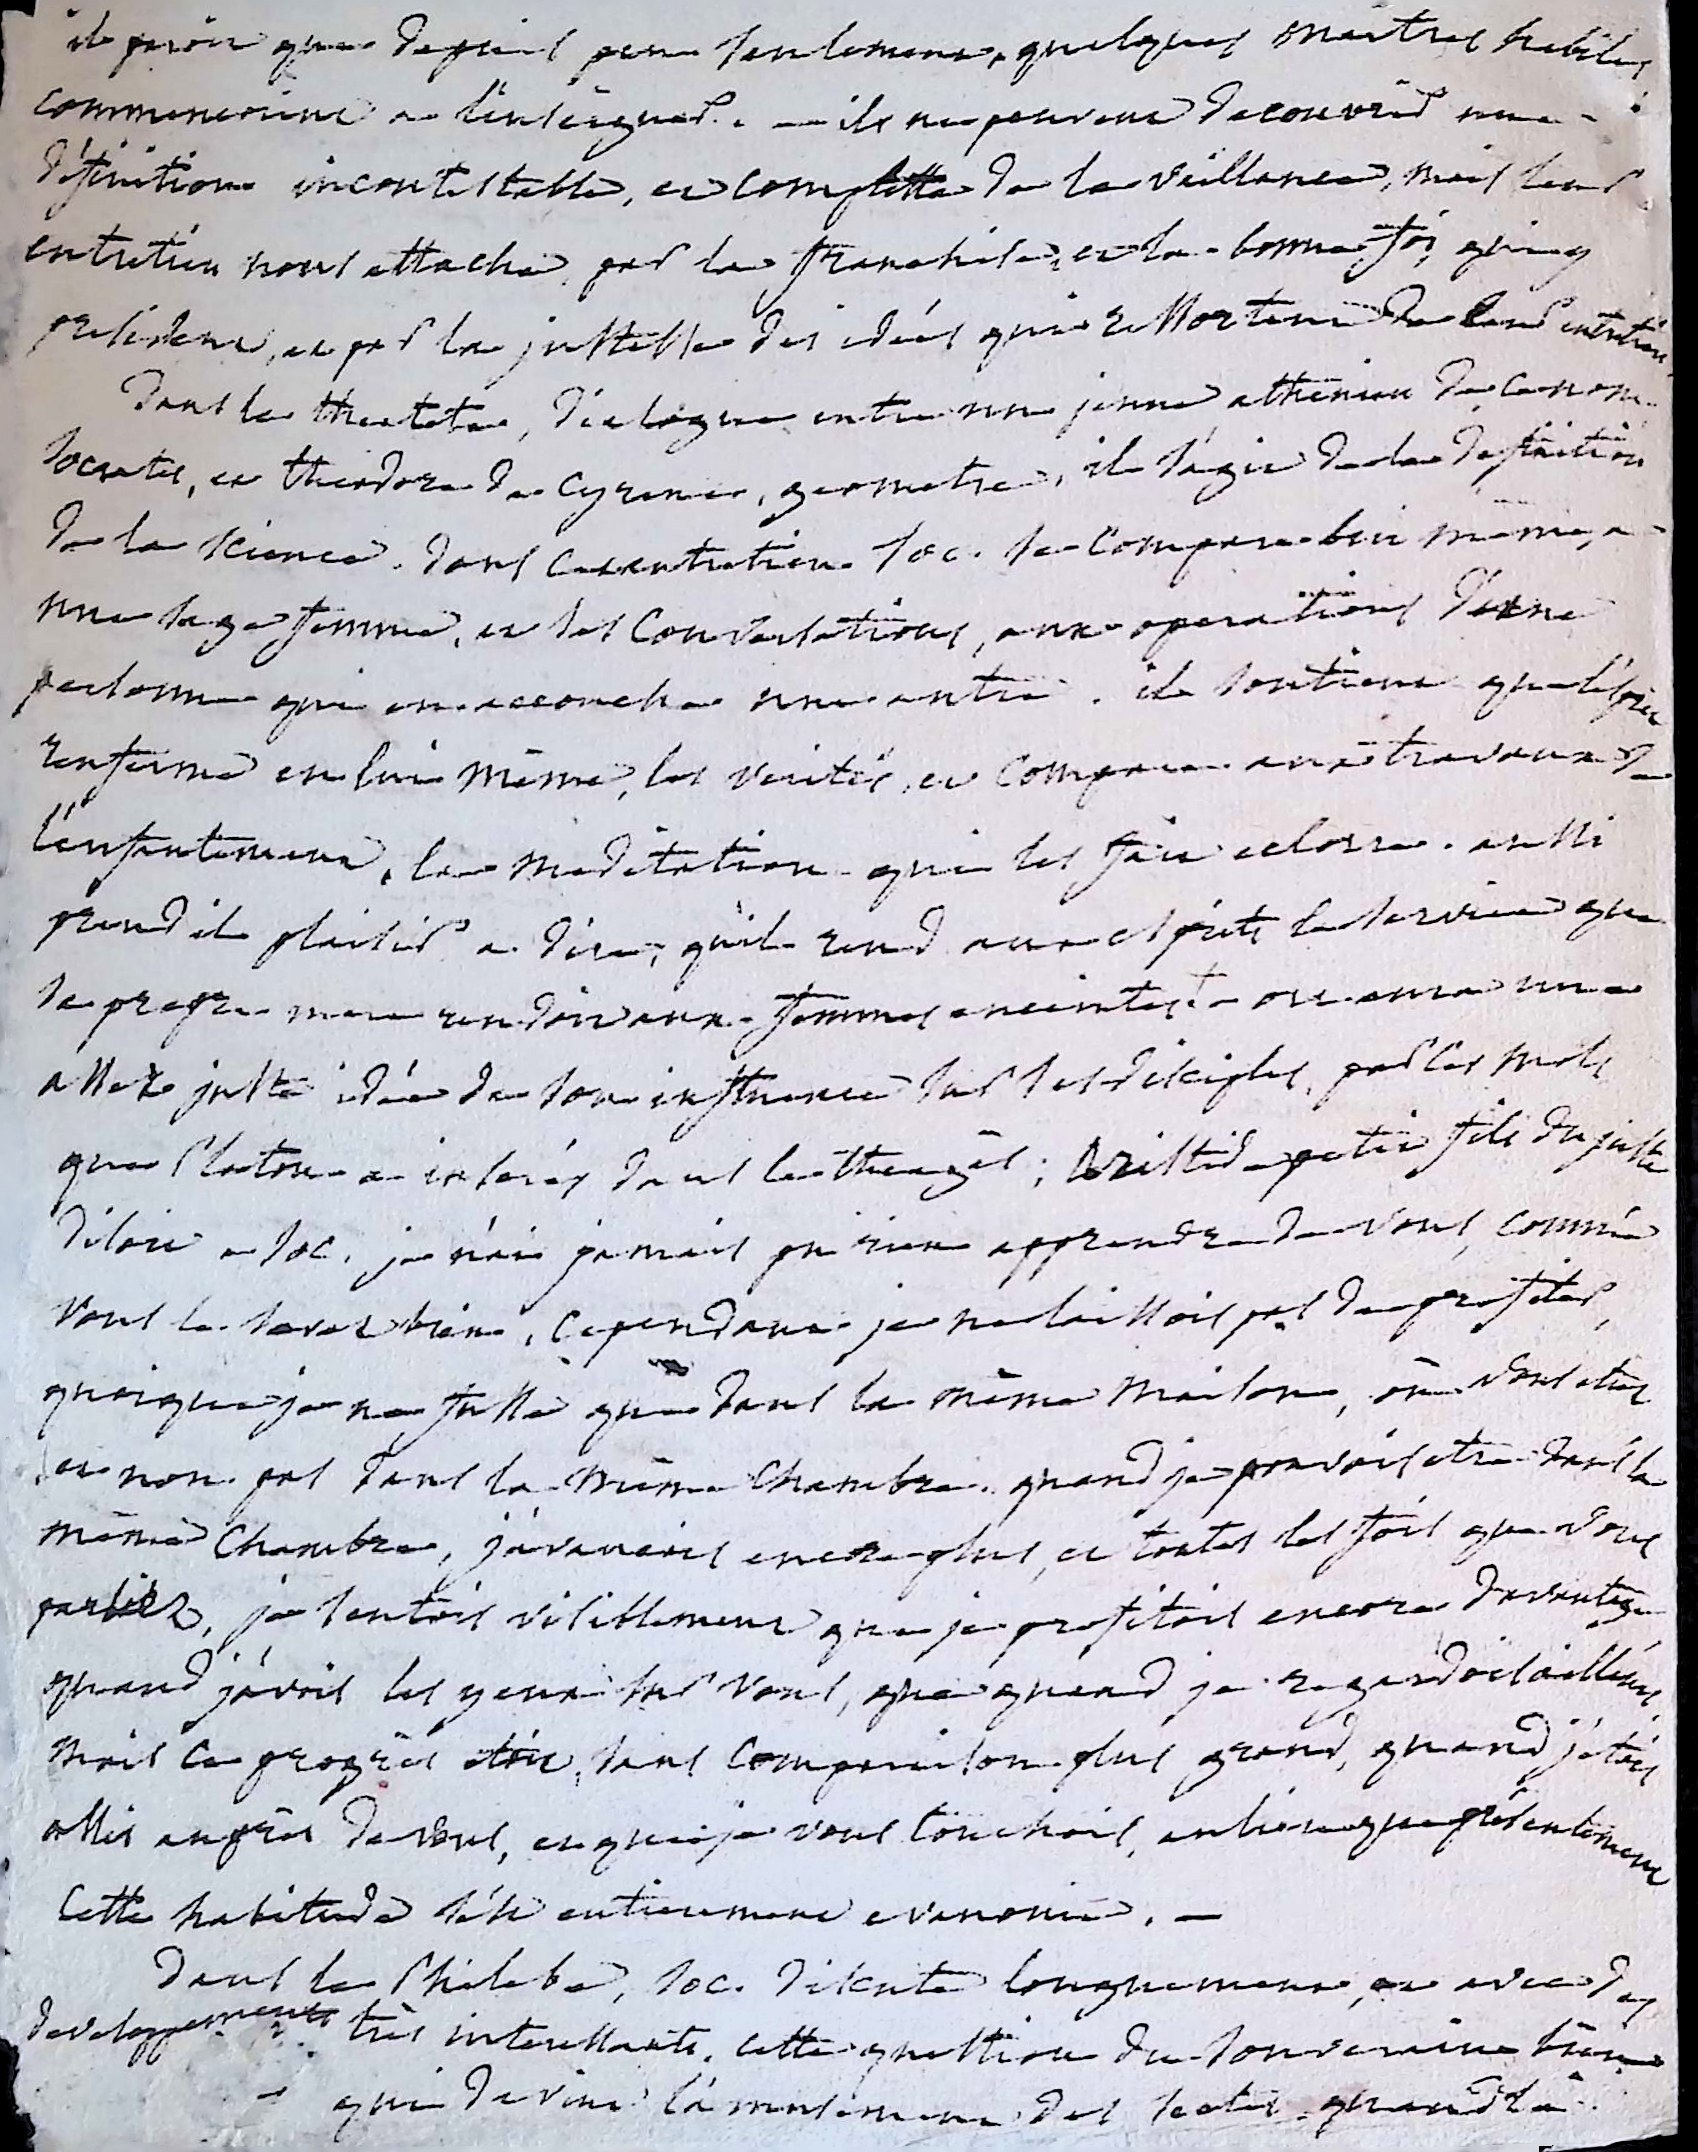 il paroit que depuis peu seulement, quelques maitres habiles
commencoient a l'enseigner. — ils ne peuvent decouvrir une
définition incontestable, et complette de la vaillance, mais leur
entretien nous attache par la franchise, et la bonne foi, qui y
président, et par la justesse des idées qui ressortent de leur entretien.
Dans le theetete, dialogue entre un jeune athenien de ce nom,
Socrates, et theodore de Cyrene, geometre, il s'agit de la definition
de la science. dans cet entretien Soc. se compare lui même, a
une sage femme, et ses conversations, aux operations d'une
personne qui en accouche une autre. il soutient que l'esprit
renferme en lui même, les verités, et compare aux travaux de
l'enfantement, la meditation qui les fait eclore. aussi
prend il plaisir a dire, qu'il rend aux esprits le service que
sa propre mere rendoit aux femmes enceintes. — on aura une
assez juste idée de son influence sur ses disciples, par ces mots
que Platon a inserés dans le theagès; Aristide petit fils du juste
disoit a Soc. je n'ai jamais pu rien apprendre de vous, comme
vous le savez bien, cependant je ne laissois pas de profiter,
quoique je ne fusse que dans la même maison, où vous etiez
et non pas dans la même chambre. quand je pouvois etre dans la
même chambre, j'avancois encore plus, et toutes les fois que vous
parliez, je sentois visiblement que je profitois encore davantage
quand j'avois les yeux sur vous, que quand je regardois ailleurs,
mais ce progrès étoit, sans comparaison plus grand, quand j'etois
assis auprès de vous, et que je vous touchois, au lieu que présentement
cette habitude s'est entierement evanouie. —
Dans le Philebe, Soc. discute longuement, et avec des
developpements très interessants, cette question du souverain bien
qui devint l'amusement des sectes, quand la